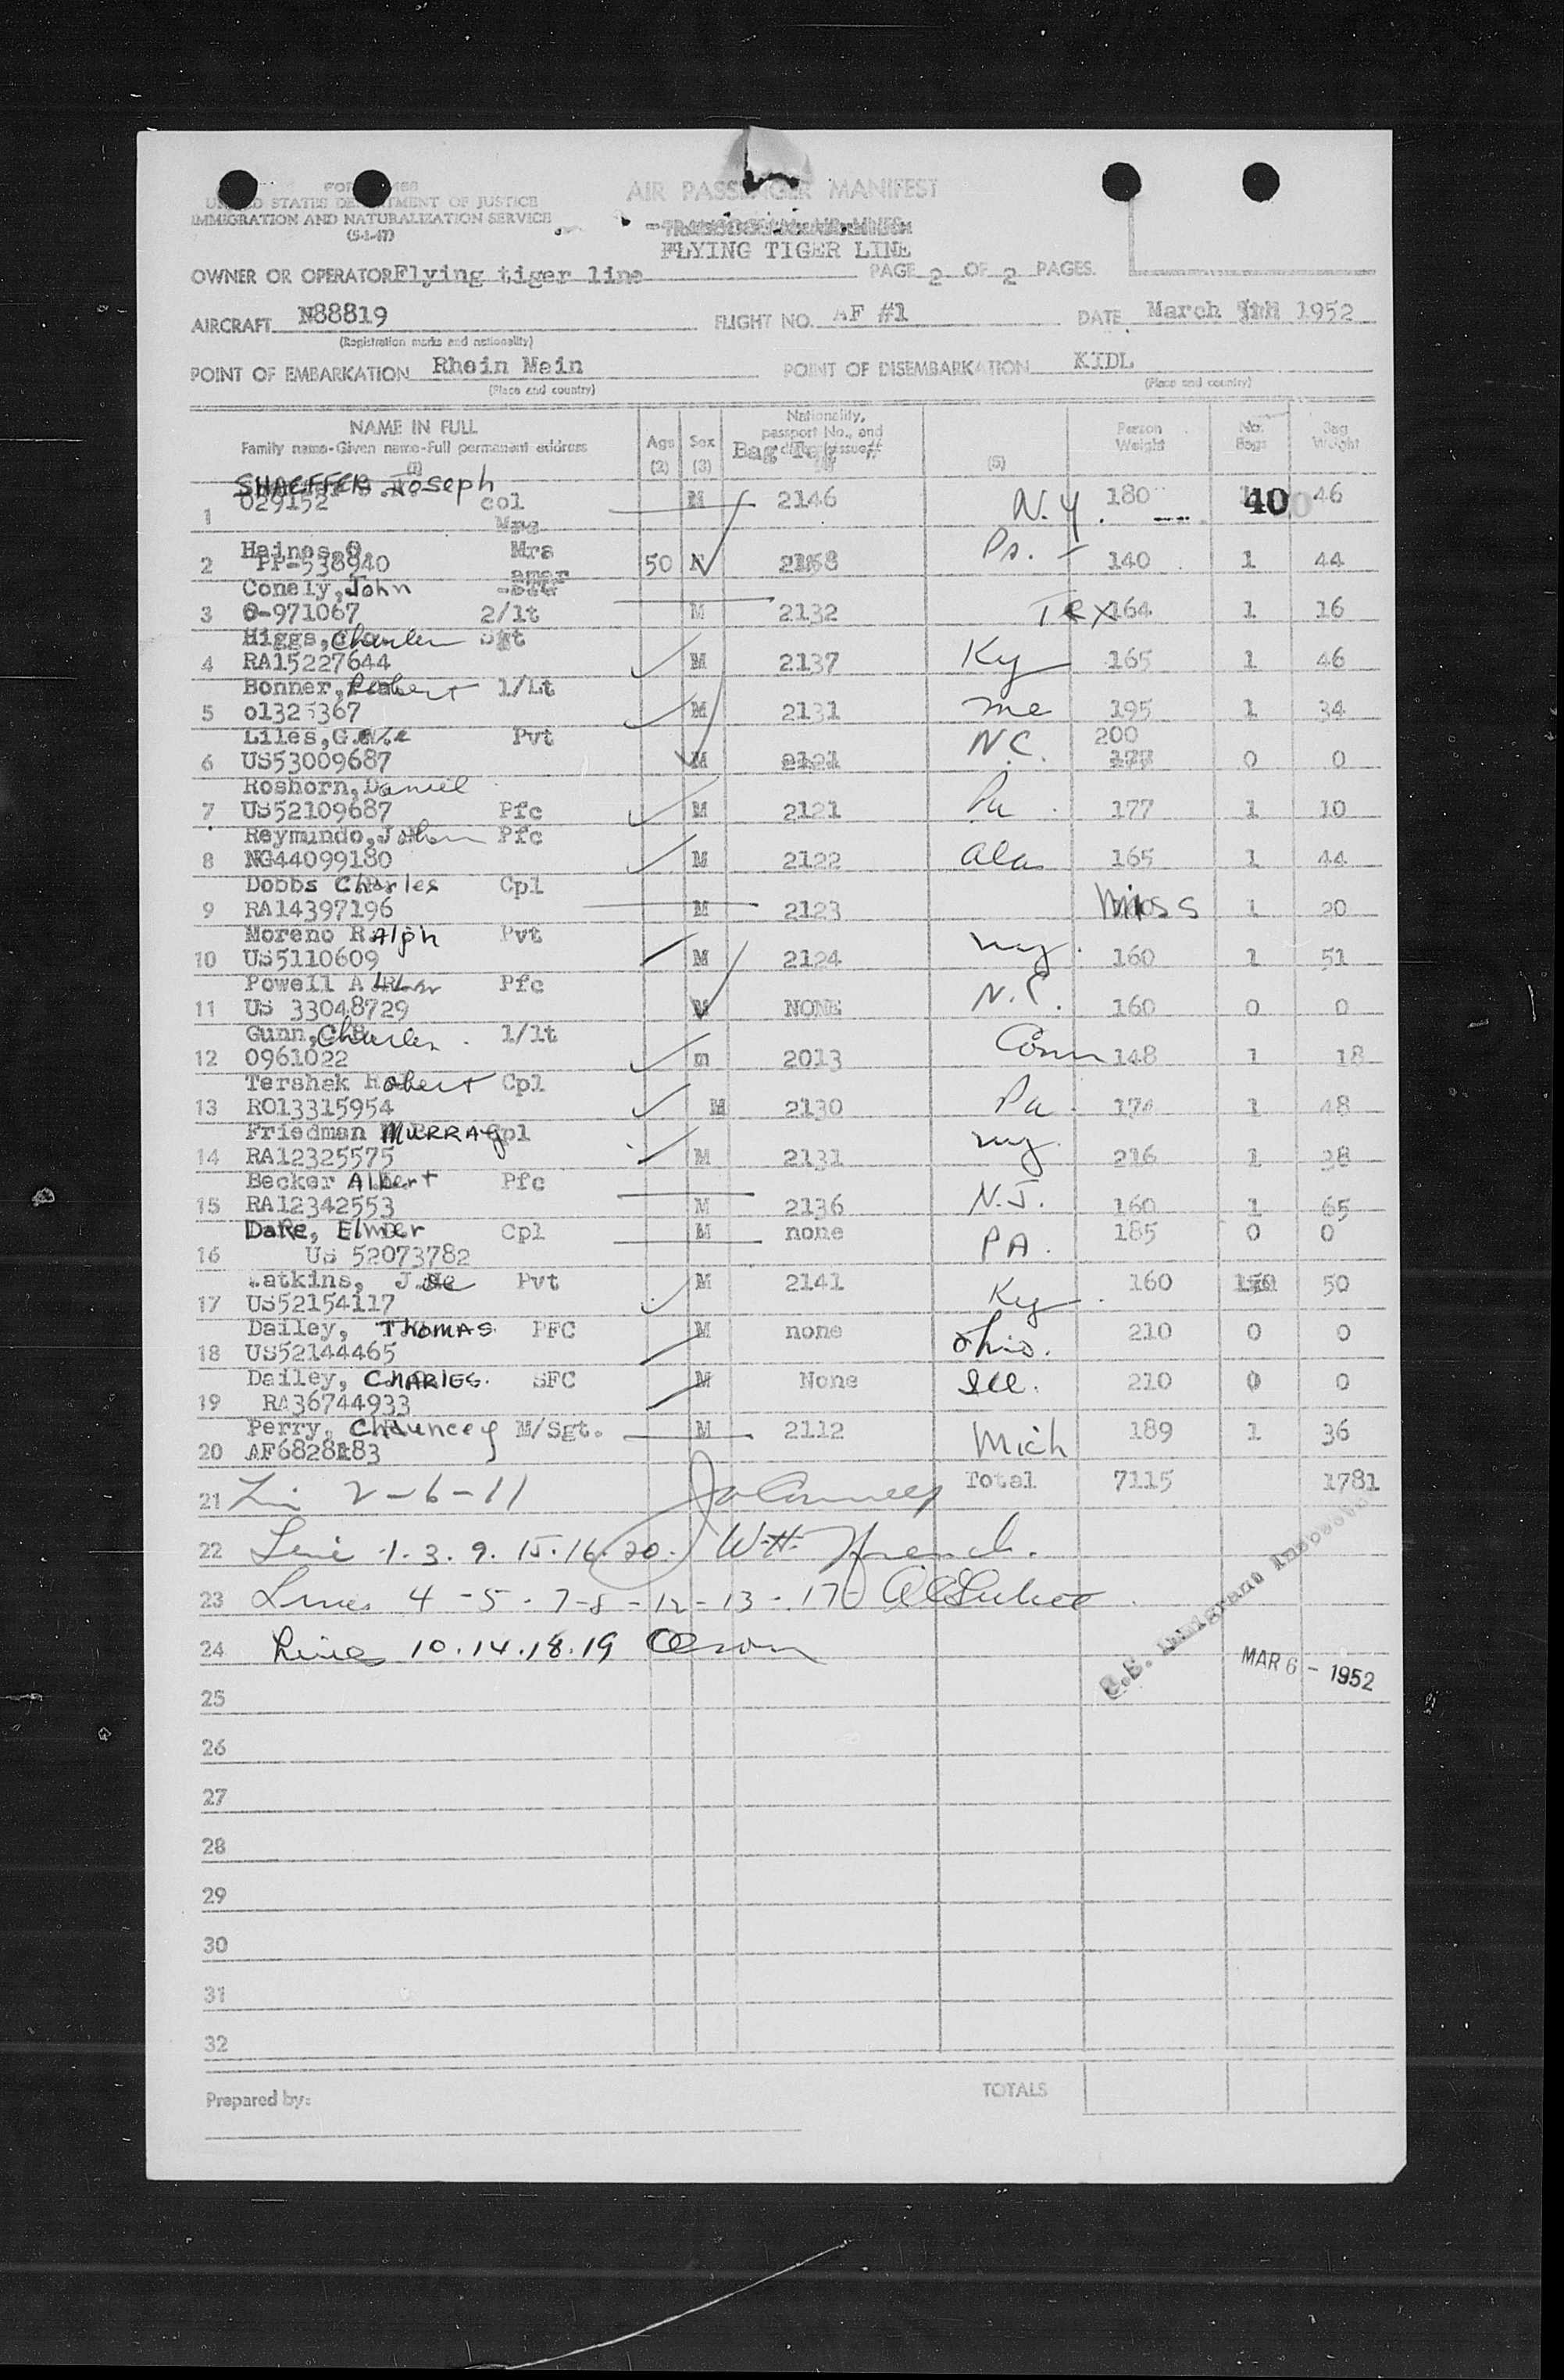 UNITED STATES DEPARTMENT OF JUSTICE
IMMIGRATION AND NATURALIZATION SERVICE
(5-1-47)
AIR PASSENGER MANIFEST
FLYING TIGER LINE
OWNER OR OPERATOR Flying tiger line PAGE 2 OF 2 PAGES.
AIRCRAFT N88819 FLIGHT NO. AF #1 DATE March 1952
(Registration marks and nationality)
POINT OF EMBARKATION Rhein Mein POINT OF DISEMBARKATION KIDL
(Place and country) (Place and country)
NAME IN FULL
Family name-Given name-Full permanent address
Age (2) Sex (3) Nationality, passport No., and Bag Tag # (5) Person Weight No. Bags Bag Weight
SHAEFFER Joseph
1 029152 col M 2146 N.Y. 180 46
Haines, Mrs
2 PP-538940 50 140 1 44
Conely, John
3 O-971067 2/lt M 2132 164 1 16
Higgs, Charles Sgt
4 RA15227644 M 2137 Ky 165 1 46
Bonner, Robert 1/Lt
5 M 2131 me 195 1 34
Liles, G. Pvt 200
6 US53009687 M 2121 N.C. 177 0 0
Roshorn, Daniel
7 US52109687 Pfc M 2121 Pa. 177 1 10
Reymundo, Pfc
8 NG44099180 M 2122 Ala 165 1 44
Dobbs Charles Cpl
9 RA14397196 M 2123 Miss 1 20
Moreno Ralph Pvt
10 US5110609 M 2124 ny. 160 1 51
Powell Pfc
11 US 33048729 M NONE N.C. 160 0 0
Gunn, Charles 1/lt
12 0961022 m 2013 Conn 148 1 18
Tershak Robert Cpl
13 RO13315954 M 2130 Pa. 174 1 48
Friedman MURRAY Cpl
14 RA12325575 M 2131 ny. 216 1 38
Becker Albert Pfc
15 RA12342553 M 2136 N.J. 160 1 65
Elmer Cpl M none 185 0 0
16 US 52073782 PA.
Watkins, J. Pvt M 2141 160 50
17 US52154117 Ky.
Dailey, THOMAS PFC M none 210 0 0
18 US52144465 Ohio.
Dailey, CHARLES. SFC M None Ill. 210 0 0
19 RA36744933
Perry, Chauncey M/Sgt. M 2112 Mich 189 1 36
20
21 2-6-11 Total 7115 1781
22 Line 1.3.9.15.16.20. W.H. French.
23 Lines 4-5-7-8-12-13-17
24 Lines 10.14.18.19 Olson
U.S. Immigrant Inspector
MAR 6 - 1952
25
26
27
28
29
30
31
32
Prepared by: TOTALS